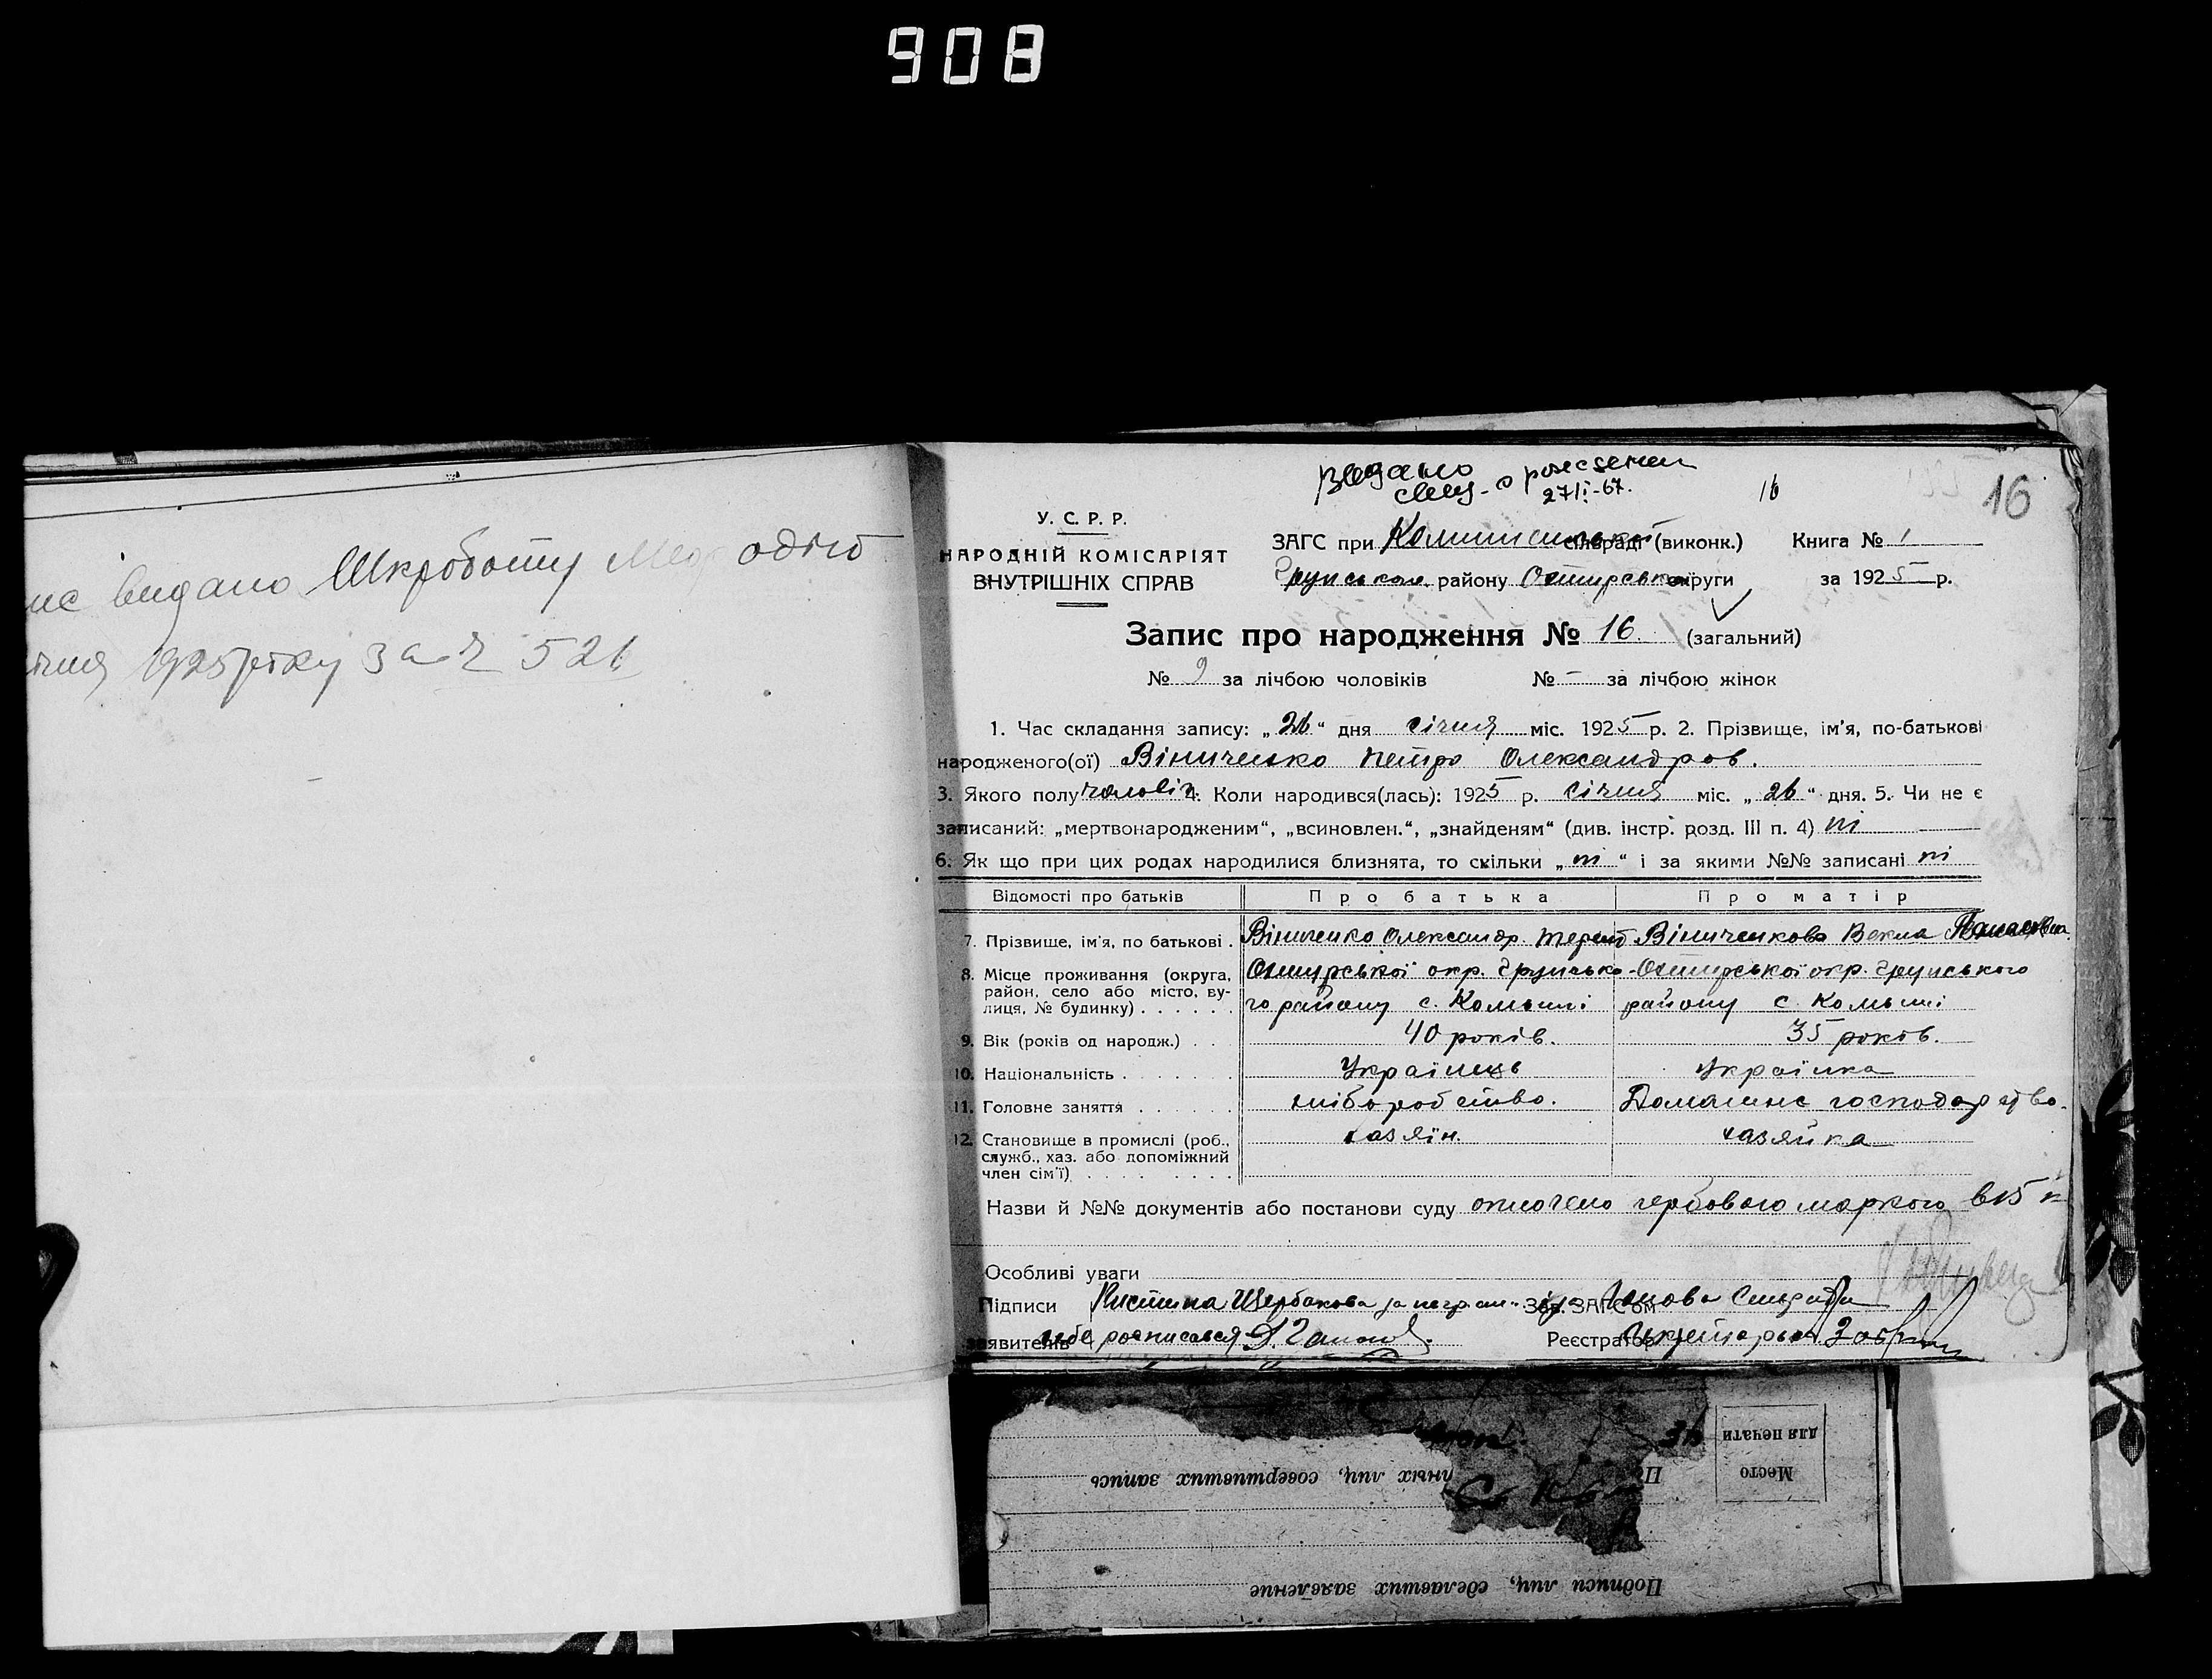 908
видано Шкроботу одію
1925 року за ч 521
Видано
27/I-67.
16
16
У. С. Р. Р.
НАРОДНІЙ КОМІСАРІЯТ
ВНУТРІШНІХ СПРАВ
ЗАГС при Комишанській сільраді (виконк.) Книга № 1
Грунського району Охтирської округи за 1925 р.
Запис про народження № 16. (загальний)
№ 9 за лічбою чоловіків № - за лічбою жінок
1. Час складання запису: „26“ дня січня міс. 1925 р. 2. Прізвище, ім'я, по-батькові
народженого(ої) Вініченко Петро Олександров.
3. Якого полу чоловік. 4. Коли народився(лась): 1925 р. січня міс. „26“ дня. 5. Чи не є
записаний: „мертвонародженим“, „всиновлен.“, „знайденям“ (див. інстр. розд. III п. 4) ні
6. Як що при цих родах народилися близнята, то скільки „ні“ і за якими №№ записані ні
Відомості про батьків Про батька Про матір
7. Прізвище, ім'я, по батькові . Вініченко Олександр Терент Вініченкова Векла
8. Місце проживання (округа, район, село або місто, вулиця, № будинку) . . . . . . Охтирської окр. Грунсько- Охтирської окр. Грунського
го району с. Комыші району с. Комыші
9. Вік (років од народж.) . . . 40 років. 35 років.
10. Національність . . . . . . Українець Українка
11. Головне заняття . . . . . . хліборобство. Домашнє господарство.
12. Становище в промислі (роб., служб., хаз. або допоміжний член сім'ї) . . . . . . . . хазяїн. хазяйка
Назви й №№ документів або постанови суду оплочено гербовою маркою в 15 к
Особливі уваги
Підписи Христина Щербакова за неграм. Зав. ЗАГС'ом Голова Сільради
заявителів себе росписався Реєстратор Секретарь
Место
для печати
лных лиц, совершивших запись
Подписи лиц, сделавших заявление